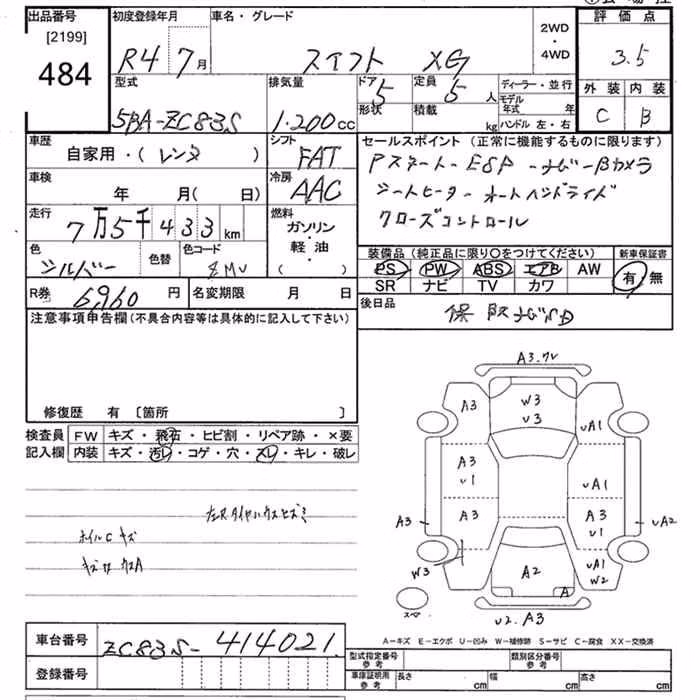 出品番号
[2199]
484
初度登録年月
R4 7月
車名・グレード
スイフト XG
2WD
・
4WD
評価点
3.5
外装 内装
C B
型式
5BA-ZC83S
排気量
1.200cc
ドア
5
形状
定員
5人
積載
kg
ディーラー・並行
モデル年式 年
ハンドル 左・右
車歴
自家用・(レンタ)
シフト
FAT
車検
年 月(日)
冷房
AAC
走行
7万5千433km
燃料
ガソリン
・
軽油
( )
色
シルバー
色替
色コード
ZMV
R券 6,960円
名変期限 月 日
セールスポイント(正常に機能するものに限ります)
Pスタート-ESP-ナビ-Bカメラ
シートヒーター オートヘッドライト
クローズコントロール
装備品(純正品に限り○をつけてください)
PS PW ABS エアB AW
SR ナビ TV カワ
新車保証書
有 無
後日品
保 取 ナビSD
注意事項申告欄(不具合内容等は具体的に記入して下さい)
修復歴 有 [箇所 ]
検査員記入欄
FW キズ・飛石・ヒビ割・リペア跡・×要
内装 キズ・汚レ・コゲ・穴・スレ・キレ・破レ
ホイルCキズ
A3.ワレ
A3
W3
U3
UA1
A3
U1
UA1
A3
A3
A3
U1
UA2
W3
A2
A
UA1
W2
スペア
U2.A3
A-キズ E-エクボ U-凹み W-補修跡 S-サビ C-腐食 XX-交換済
車台番号 ZC83S-414021
登録番号
型式指定番号 参考
類別区分番号 参考
車庫証明用 参考
長さ cm
幅 cm
高さ cm